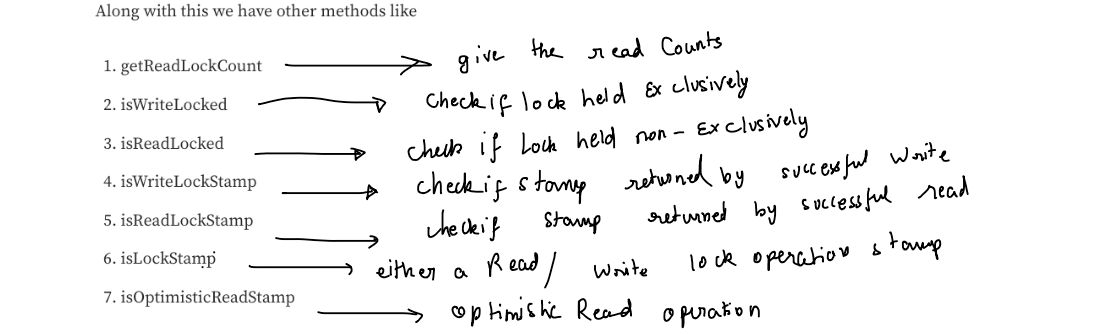 Along with this we have other methods like
1. getReadLockCount give the read Counts
2. isWriteLocked Check if lock held Exclusively
3. isReadLocked check if Lock held non-Exclusively
4. isWriteLockStamp check if stamp returned by successful Write
5. isReadLockStamp check if stamp returned by successful read
6. isLockStamp either a Read/ Write lock operation stamp
7. isOptimisticReadStamp optimistic Read operation